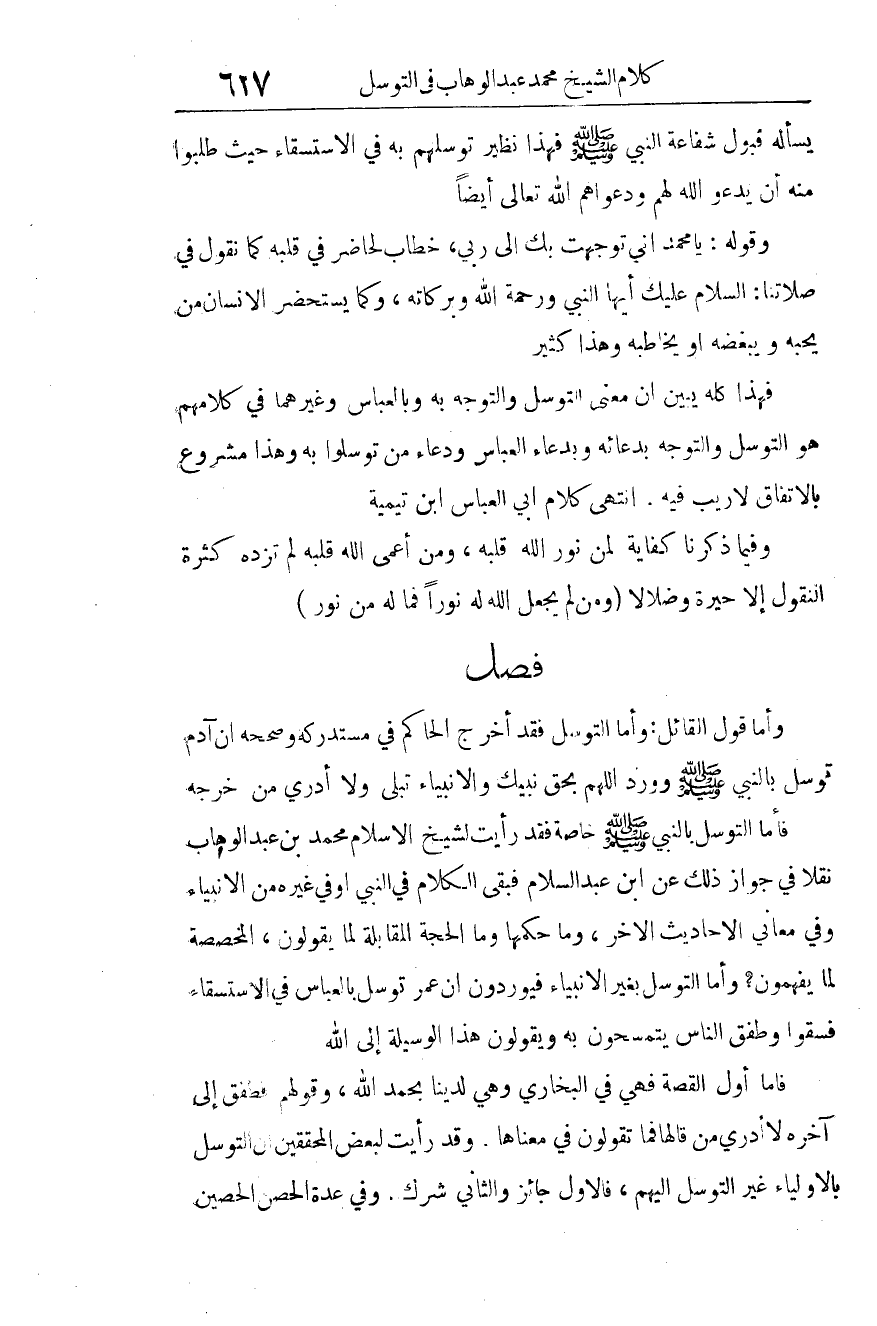 كلام الشيخ محمد عبد الوهاب فى التوسل ٦٢٧
يسأله قبول شفاعة النبي ﷺ فهذا نظير توسلهم به في الاستسقاء حيث طلبوا
منه أن يدعو الله لهم ودعواهم الله تعالى أيضاً
وقوله : يامحمد اني توجهت بك الى ربي، خطاب لحاضر في قلبه كما نقول في
صلاتنا: السلام عليك أيها النبي ورحمة الله وبركاته ، وكما يستحضر الانسان من
يحبه و يبغضه او يخاطبه وهذا كثير
فهذا كله يبين ان معنى التوسل والتوجه به وبالعباس وغيرهما في كلامهم
هو التوسل والتوجه بدعائه وبدعاء العباس ودعاء من توسلوا به وهذا مشروع
بالاتفاق لاريب فيه . انتهى كلام ابي العباس ابن تيمية
وفيما ذكرنا كفاية لمن نور الله قلبه ، ومن أعمى الله قلبه لم تزده كثرة
النقول إلا حيرة وضلالا (ومن لم يجعل الله له نوراً فما له من نور )
فصل
وأما قول القائل: وأما التوسل فقد أخرج الحاكم في مستدركه وصححه ان آدم
توسل بالنبي ﷺ وورد اللهم بحق نبيك والانبياء قبلى ولا أدري من خرجه
فأما التوسل بالنبي ﷺ خاصة فقد رأيت لشيخ الاسلام محمد بن عبد الوهاب
نقلا في جواز ذلك عن ابن عبدالسلام فبقى الكلام في النبي او في غيره من الانبياء
وفي معاني الاحاديث الاخر ، وما حكمها وما الحجة المقابلة لما يقولون ، المخصصة
لما يفهمون؟ وأما التوسل بغير الانبياء فيوردون ان عمر توسل بالعباس في الاستسقاء
فسقوا وطفق الناس يتمسحون به ويقولون هذا الوسيلة إلى الله
فاما أول القصة فهي في البخاري وهي لدينا بحمد الله ، وقولهم فطفق إلى
آخره لا أدري من قالها فما تقولون في معناها . وقد رأيت لبعض المحققين ان التوسل
بالاولياء غير التوسل اليهم ، فالاول جائز والثاني شرك . وفي عدة الحصن الحصين